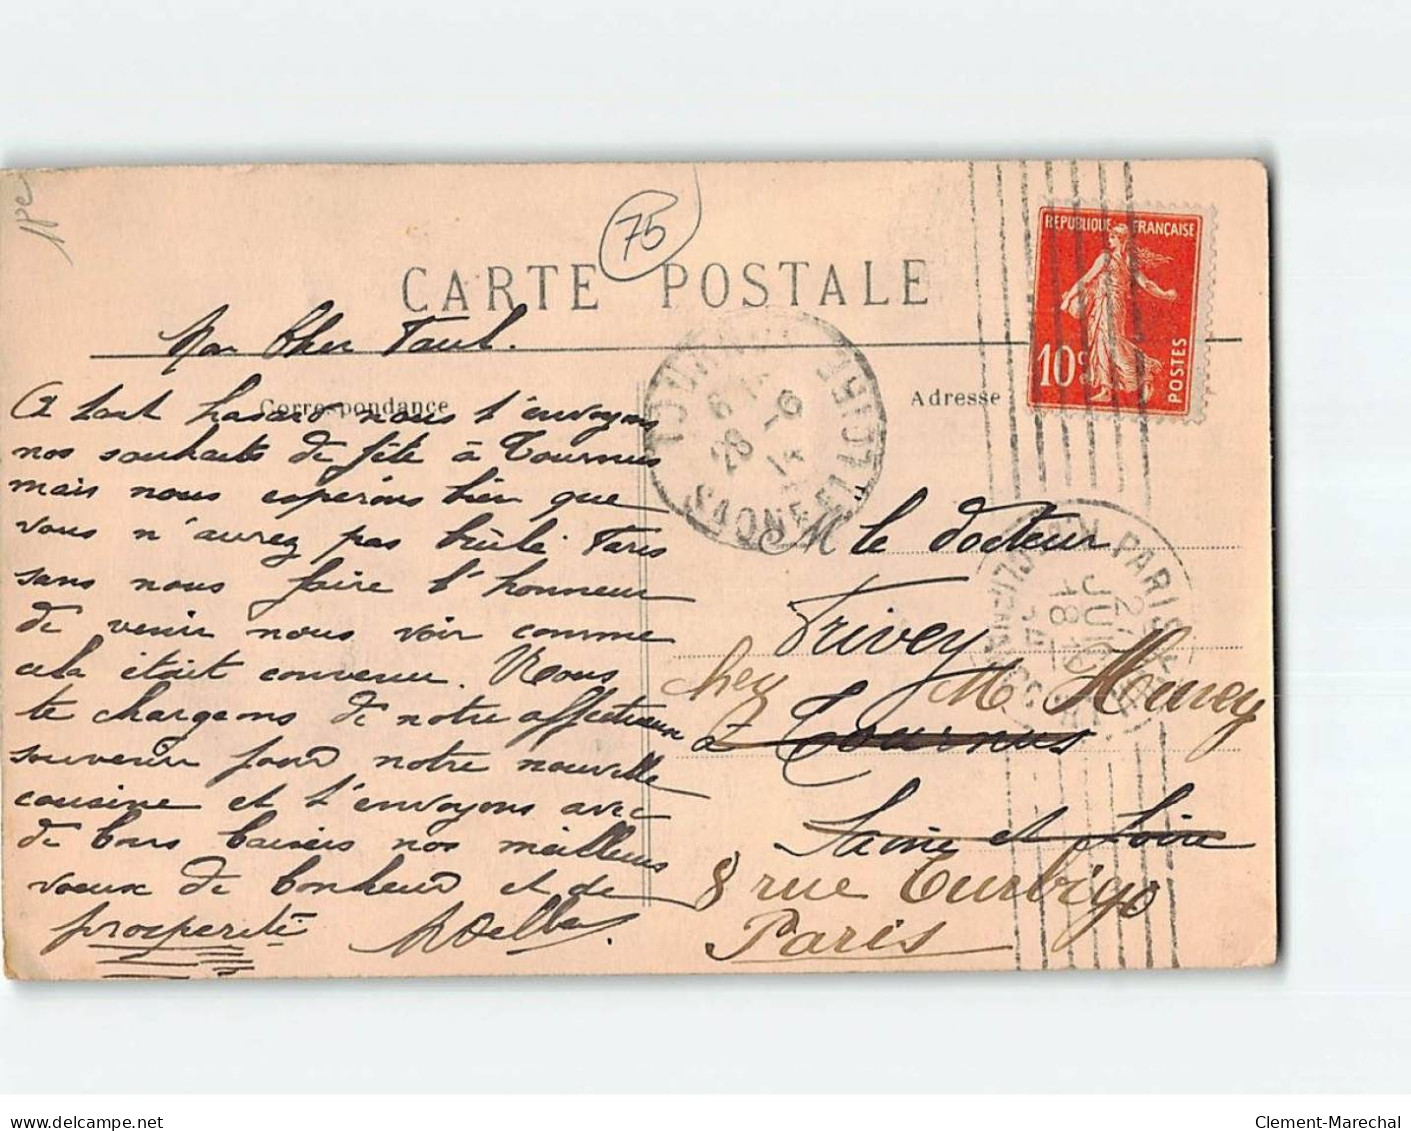 1pc
75
CARTE POSTALE
REPUBLIQUE FRANÇAISE
10c
POSTES
Mon Cher Paul.
Correspondance
Adresse
A tout hasard nous t'envoyons
nos souhaits de fête à Tournus
mais nous espérons bien que
vous n'aurez pas brûlé Paris
sans nous faire l'honneur
de venir nous voir comme
cela était convenu. Nous
te chargeons de notre affectueux
souvenir pour notre nouvelle
cousine et t'envoyons avec
de bons baisers nos meilleurs
vœux de bonheur et de
prosperité
SAONE ET LOIRE
28 -6
PARIS
M le Docteur
Privey
chez M
à Tournus
Saône et Loire
8 rue Turbigo
Paris
Clement-Marechal